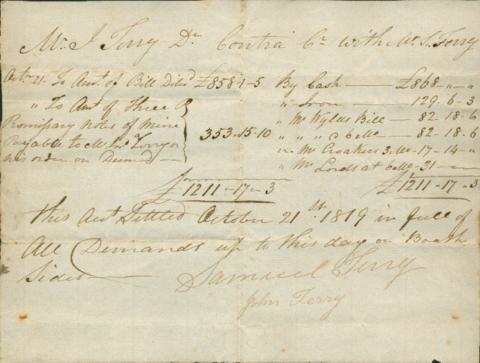 Mr. J Terry Dr Contra Cr with Mr. S. Terry
Octr. 21. To Amt. of Bill Deld £858-1-5 By Cash £868 " "
" To Amt of three P " Iron 129.6-3
Romissary Notes of mine " Mr Wyllis Bill 82.18.6
Payable to Mr Jno. Terry or 353-15-10 " " " 82-18-6
his order on Demand " Mr Croakers 3 17-14
" Mr Lords at 31
£1211-17-3 £1211-17-3
this Amt Settled October 21st. 1819 in full of
All Demands up to this day on Boath
Sides
Samuel Terry
John Terry